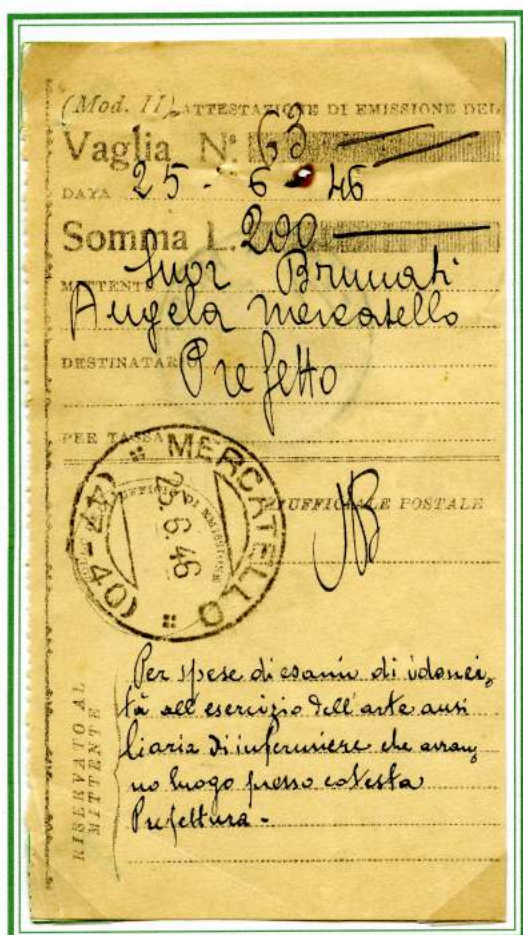 (Mod. II) ATTESTAZIONE DI EMISSIONE DEL
Vaglia N. 63
DATA 25 - 6 - 46
Somma L. 200
MITTENTE Suor Brunati
Angela Mercatello
DESTINATARIO Prefetto
PER TASSA
MERCATELLO
(47-40)
25.6.46
UFFICIO DI EMISSIONE
L'UFFICIALE POSTALE
RISERVATO AL
MITTENTE
Per spese di esami di idonei,
tà all'esercizio dell'arte ausi
liaria di infermiere che avran,
no luogo presso cotesta
Prefettura -